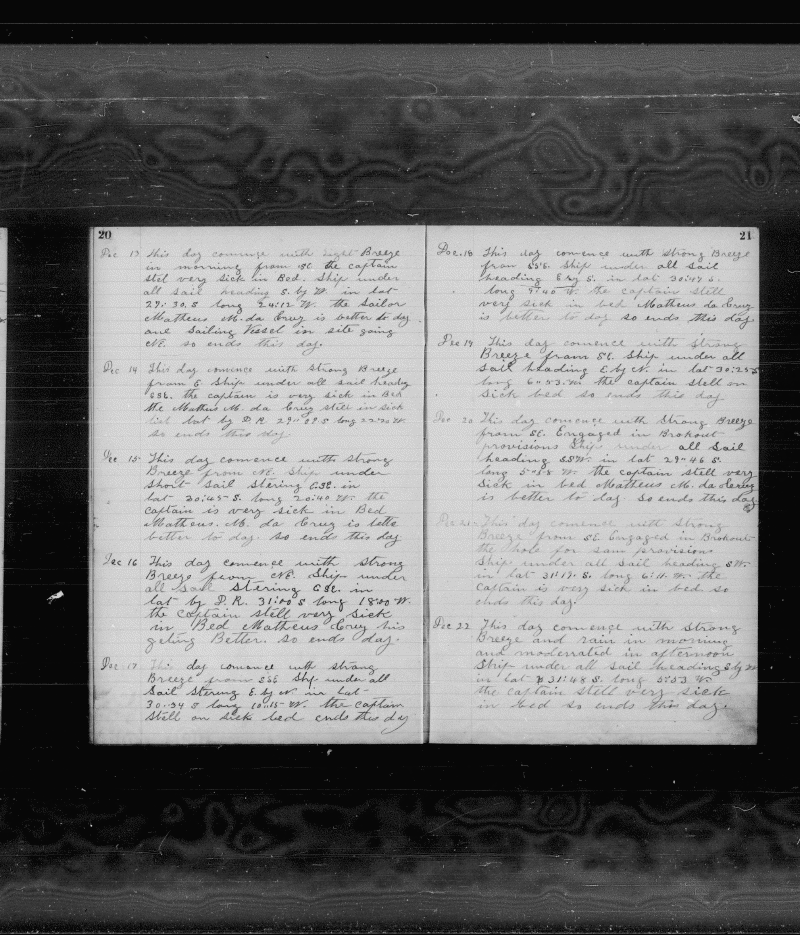 20
Dec 13 This day comence with light Breeze
in morning from SE the captain
stel very sick in Bed. Ship under
all sail heading S. by W. in lat
29:30 S long 24:12 W. the Sailor
Matheus M. da Cruz is better to day
and Sailing Vessel in site going
NE. so ends this day.
Dec 14 This day comence with strong Breeze
from E Ship under all sail heading
SSE. the captain is very sick in Bed
the Matheus M. da Cruz still in sick
list lat by D R. 29:09 S long 22:20 W
so ends this day
Dec 15 This day comence with strong
Breeze from NE. Ship under
short sail stering ESE. in
lat 30:45 S. long 20:40 W. the
captain is very sick in Bed
Matheus. M. da Cruz is
better to day. so ends this day
Dec 16 This day comence with strong
Breeze from NE. Ship under
all sail stering ESE. in
lat by D. R. 31:00 S long 18:00 W.
the captain stell very sick
in Bed Matheus Cruz his
geting Better. so ends day.
Dec 17 This day comence with strong
Breeze from SSE Ship under all
Sail Stering E. by N in Lat
30:34 S long 10:15 W. the captain
still on sick bed ends this day
21
Dec. 18 This day comence with strong Breeze
from SSE. Ship under all sail
heading E by S. in lat 30:47 S.
long 9:40 W. the captain still
very sick in bed Matheus da Cruz
is better to day so ends this day
Dec 19 This day comence with strong
Breeze from SE. Ship under all
sail heading E by N. in lat 30:25 S
long 6:53 W the captain stell on
sick bed so ends this day
Dec 20 This day comence with Strong Breeze
from SE. Engaged in Brokout
provisions Ship under all Sail
heading SSW in lat 29:46 S.
long 5:58 W. the captain stell very
Sick in bed Matheus M. da Cruz
is better to day. So ends this day
Dec 21 This day comence with Strong
Breeze from SE. Engaged in Brokout
the hole for som provisions
Ship under all sail heading SW.
in lat 31:19. S. long 6:11. W. the
captain is very sick in bed so
ends this day.
Dec 22 This day comence with strong
Breeze and rain in morning
and moderated in afternoon
Ship under all sail heading S by W
in lat 31:48 S. long 5:53 W
the captain stell very sick
in bed so ends this day.